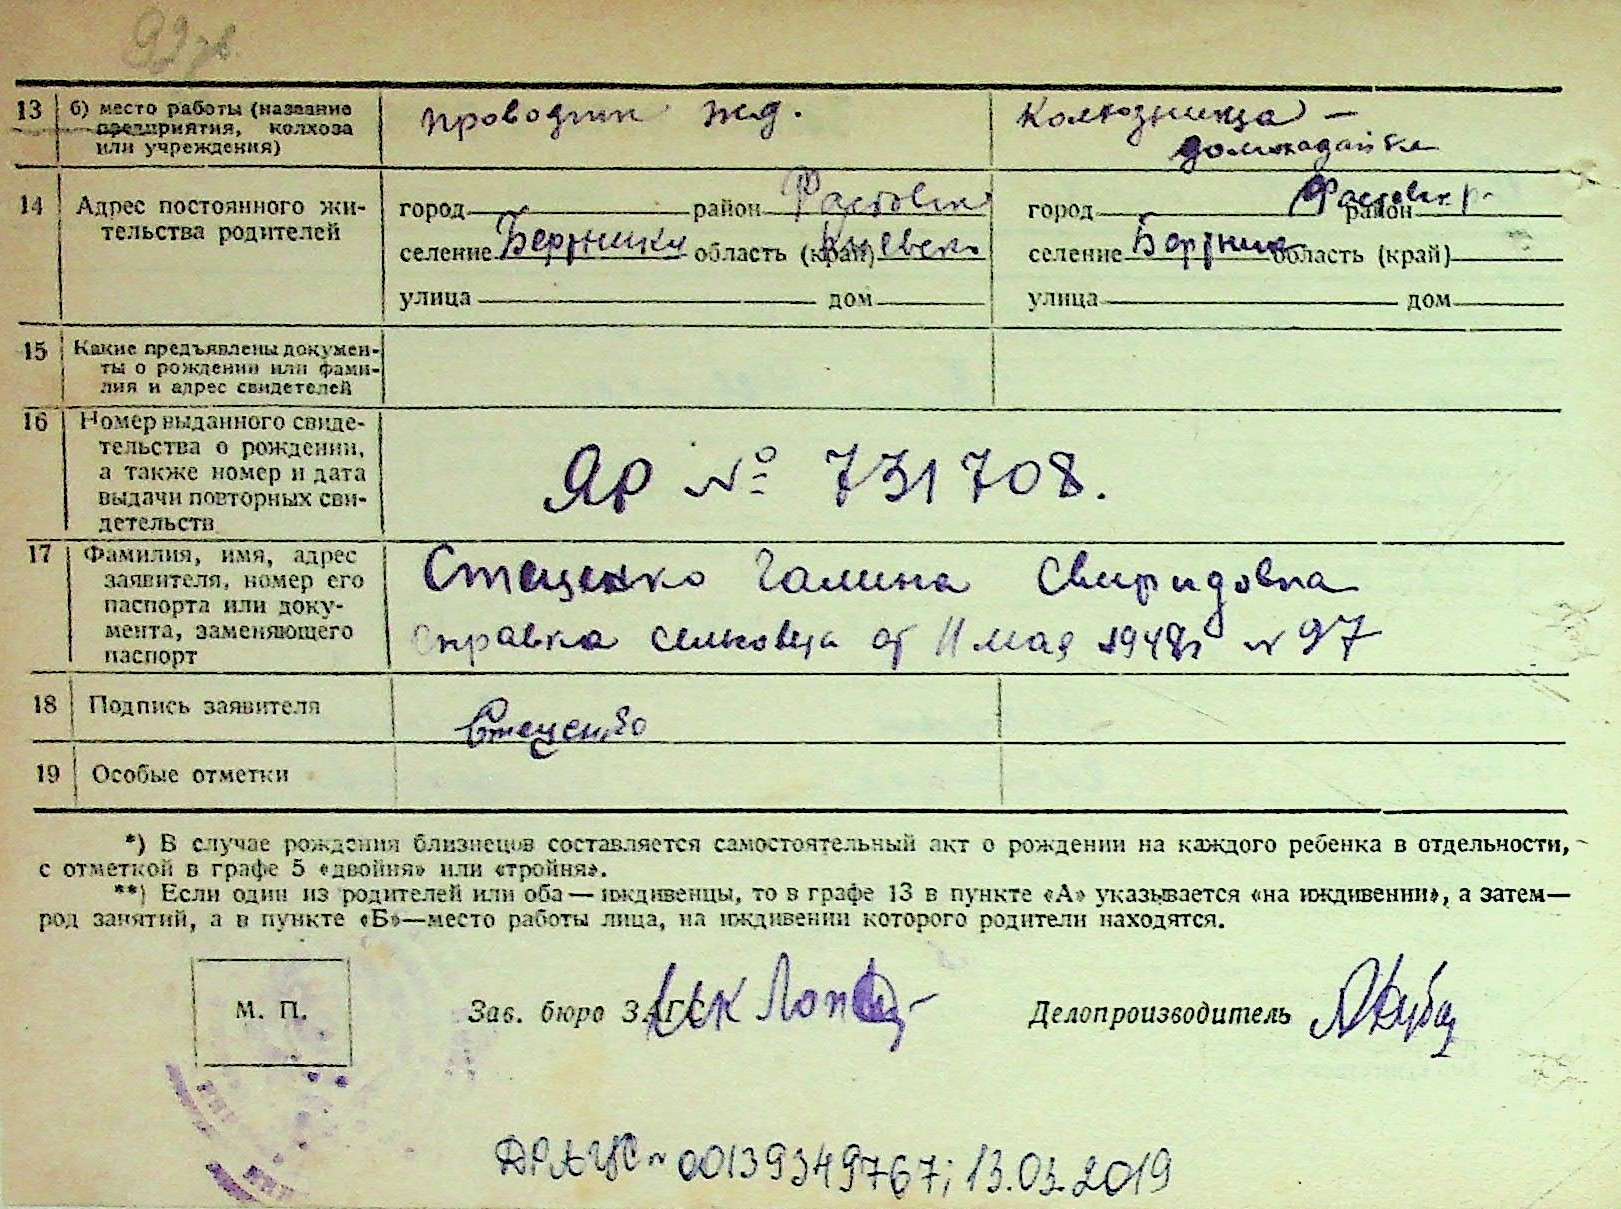 13 б) место работы (название проводник жд. Колхозница –
предприятия, колхоза домохозяйка
или учреждения)
14 Адрес постоянного жи- город район Фастовск город район Фастовск р.
тельства родителей селение область (край) Киевск селение область (край)
улица дом улица дом
15 Какие предъявлены докумен-
ты о рождении или фами-
лия и адрес свидетелей
16 Номер выданного свиде-
тельства о рождении,
а также номер и дата ЯР № 731708.
выдачи повторных сви-
детельств
17 Фамилия, имя, адрес Стеценко Галина Свиридовна
заявителя, номер его
паспорта или доку-
мента, заменяющего Справка сельсовета от 11 мая 1948г N 97
паспорт
18 Подпись заявителя Стеценко
19 Особые отметки
*) В случае рождения близнецов составляется самостоятельный акт о рождении на каждого ребенка в отдельности,
с отметкой в графе 5 «двойня» или «тройня».
**) Если один из родителей или оба — иждивенцы, то в графе 13 в пункте «А» указывается «на иждивении», а затем—
род занятий, а в пункте «Б»—место работы лица, на иждивении которого родители находятся.
М. П. Зав. бюро ЗАГС Делопроизводитель
ДРАЦС № 00139349767; 13.03.2019